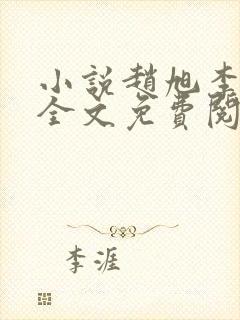 小說趙旭李
全文免費閱
李涯